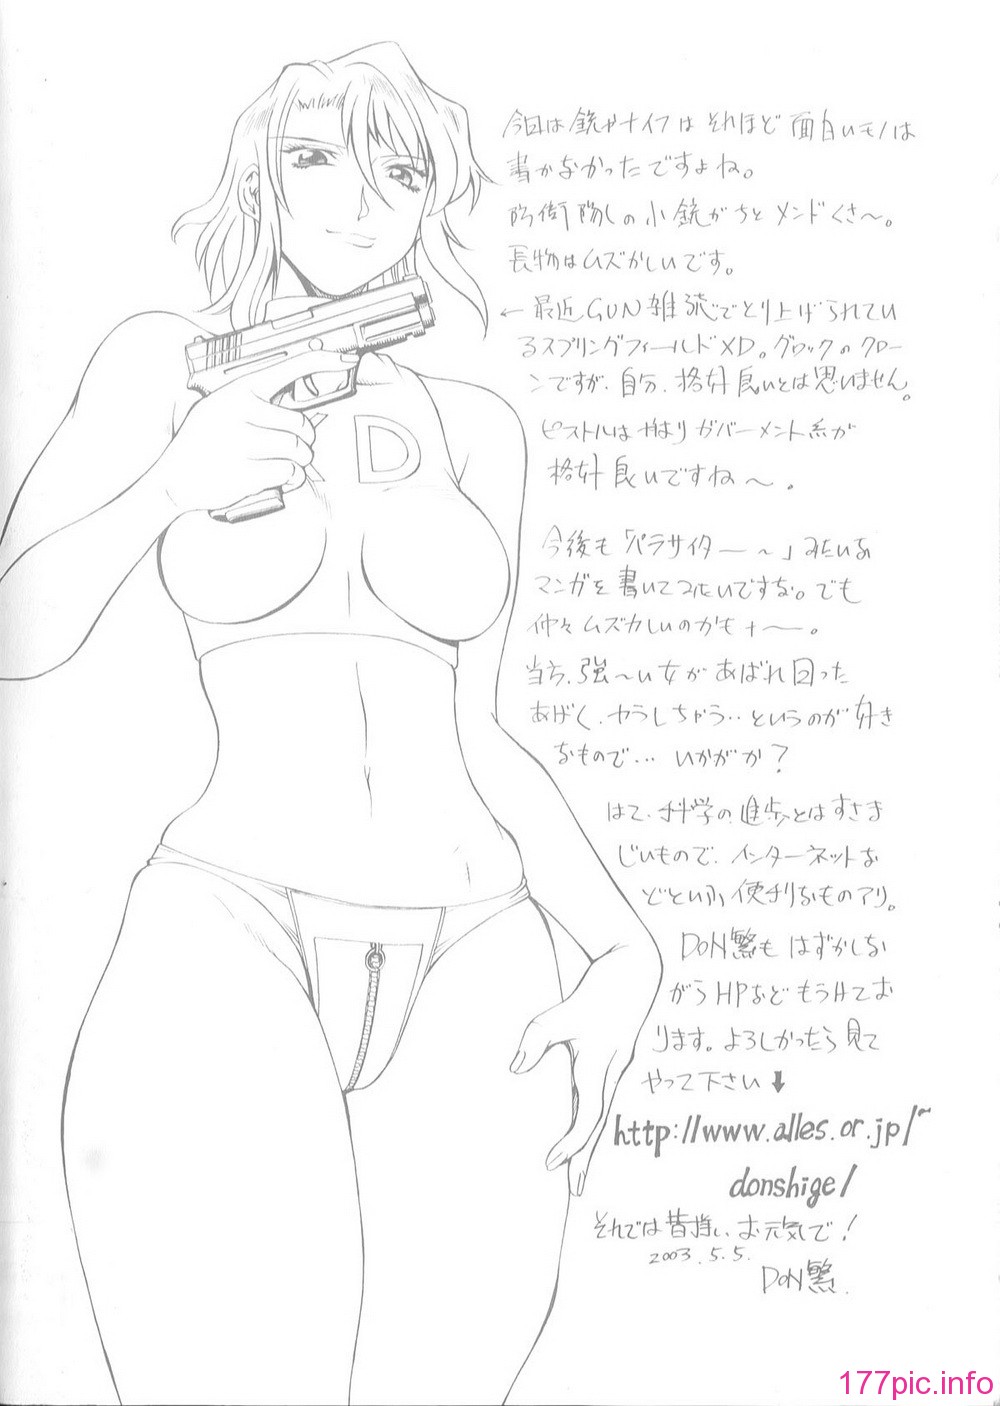 今回は銃やナイフはそれほど面白いモノは
書かなかったですよね。
防衛隊の小銃がちとメンドくさ〜。
長物はムズかしいです。
←最近GUN雑誌でとり上げられてい
るスプリングフィールドXD。グロックのクロー
ンですが、自分、格好良いとは思いません。
ピストルはやはりガバーメント系が
格好良いですね〜。
XD
今後も「パラサイター〜」みたいな
マンガを書いてみたいですな。でも
仲々ムズカしいのかも
強〜い女があばれ回った
あげく、ヤラしちゃう‥というのが好き
なもので… いかがか？
はて、科学の進歩とはすさま
じいもので、インターネットな
どという便利なものアリ。
DON繁もはずかしな
がらHPなどもうけてお
ります。よろしかったら見て
やって下さい⬇
http://www.alles.or.jp/~
donshige/
それでは皆様、お元気で！
2003.5.5.
DON繁.
177pic.info